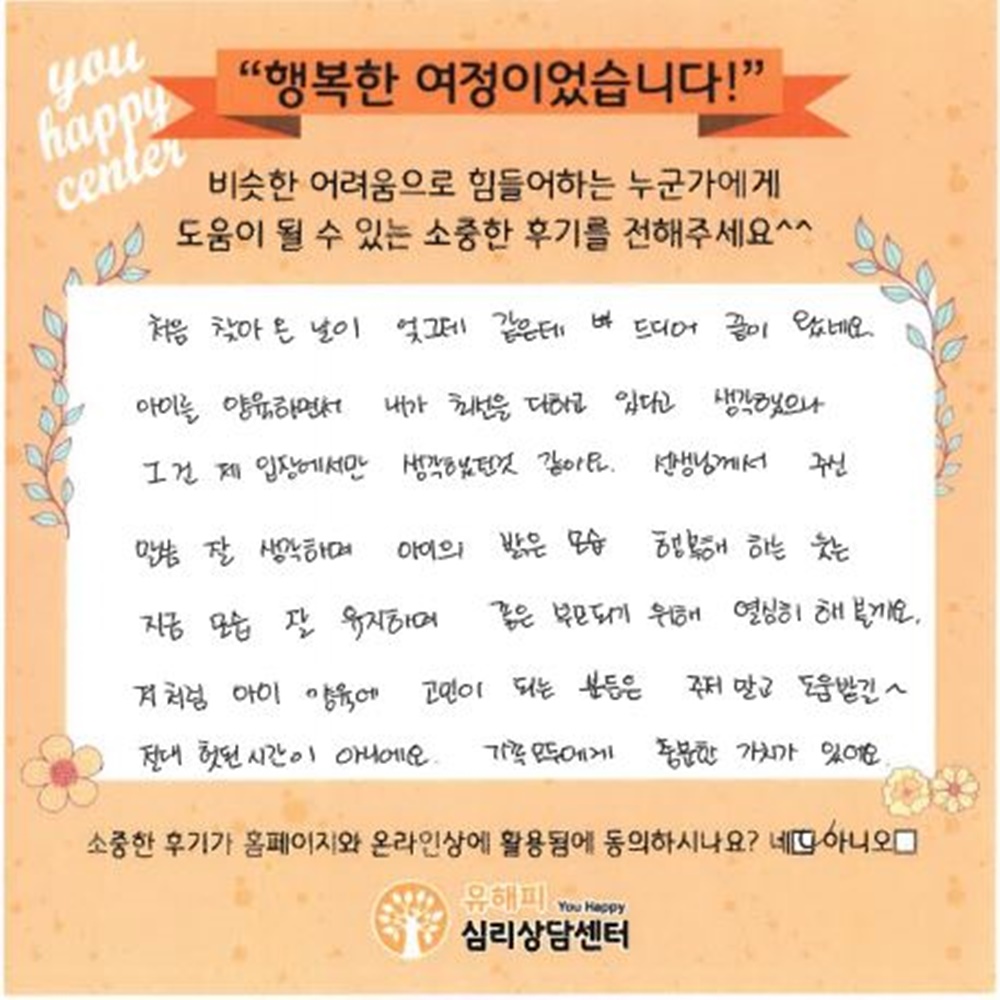 you
happy
center
“행복한 여정이었습니다!”
비슷한 어려움으로 힘들어하는 누군가에게
도움이 될 수 있는 소중한 후기를 전해주세요^^
처음 찾아 온 날이 엊그제 같은데 벌써 드디어 끝이 왔네요.
아이를 양육하면서 내가 최선을 다하고 있다고 생각했으나
그건 제 입장에서만 생각했던것 같아요. 선생님께서 주신
말씀 잘 생각하며 아이의 밝은 모습 행복해 하는 웃는
지금 모습 잘 유지하며 좋은 부모되기 위해 열심히 해 볼게요.
저처럼 아이 양육에 고민이 되는 분들은 주저 말고 도움받긴~
절대 헛된 시간이 아니에요. 가족모두에게 충분한 가치가 있어요.
소중한 후기가 홈페이지와 온라인상에 활용됨에 동의하시나요? 네☑ 아니오□
유해피 You Happy
심리상담센터